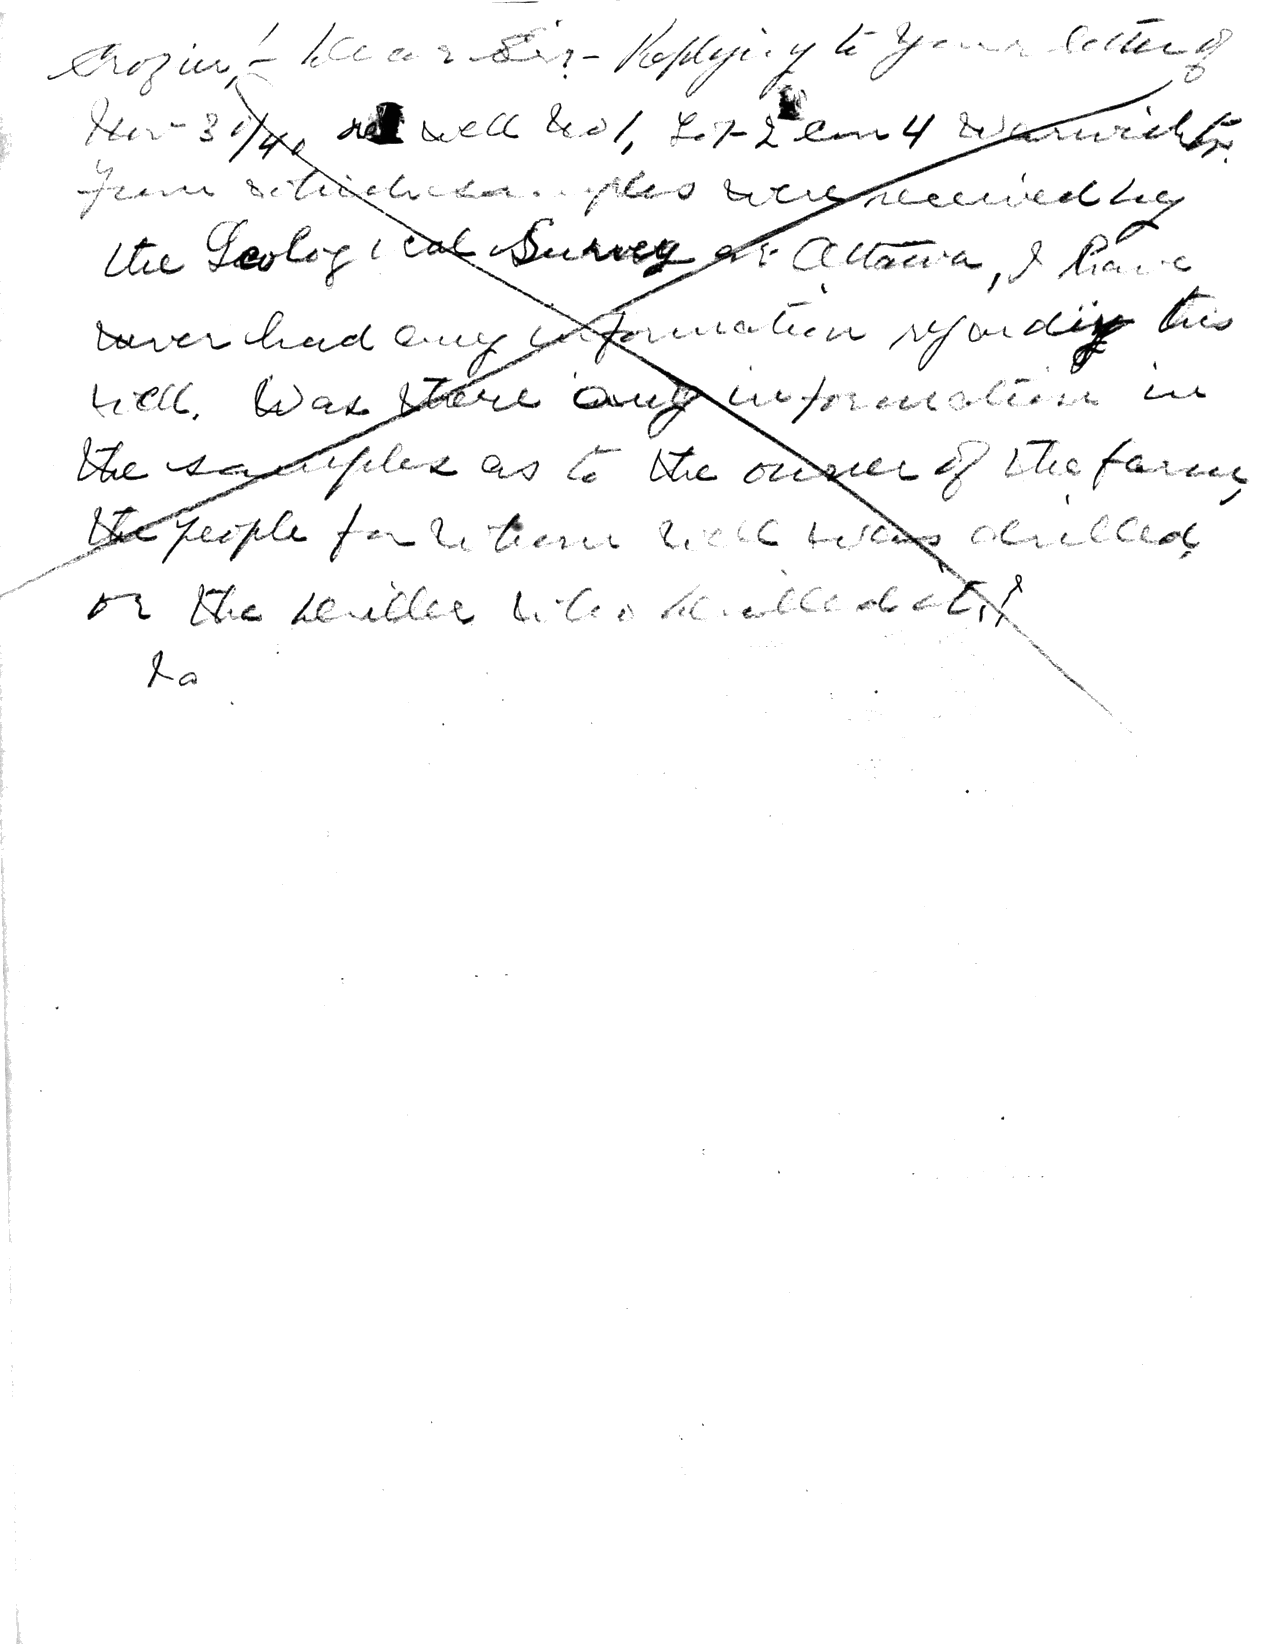 Crozier,- Dear Sir,- Replying to your letter of
Nov- 30/40 re well No 1, Lot 2 Con 4 Warwick Tp.
from which samples were received by
the Geological Survey at Ottawa, I have
never had any information regarding this
well. Was there any information in
the samples as to the owner of the farm,
the people for whom well was drilled,
or the driller who drilled it,?